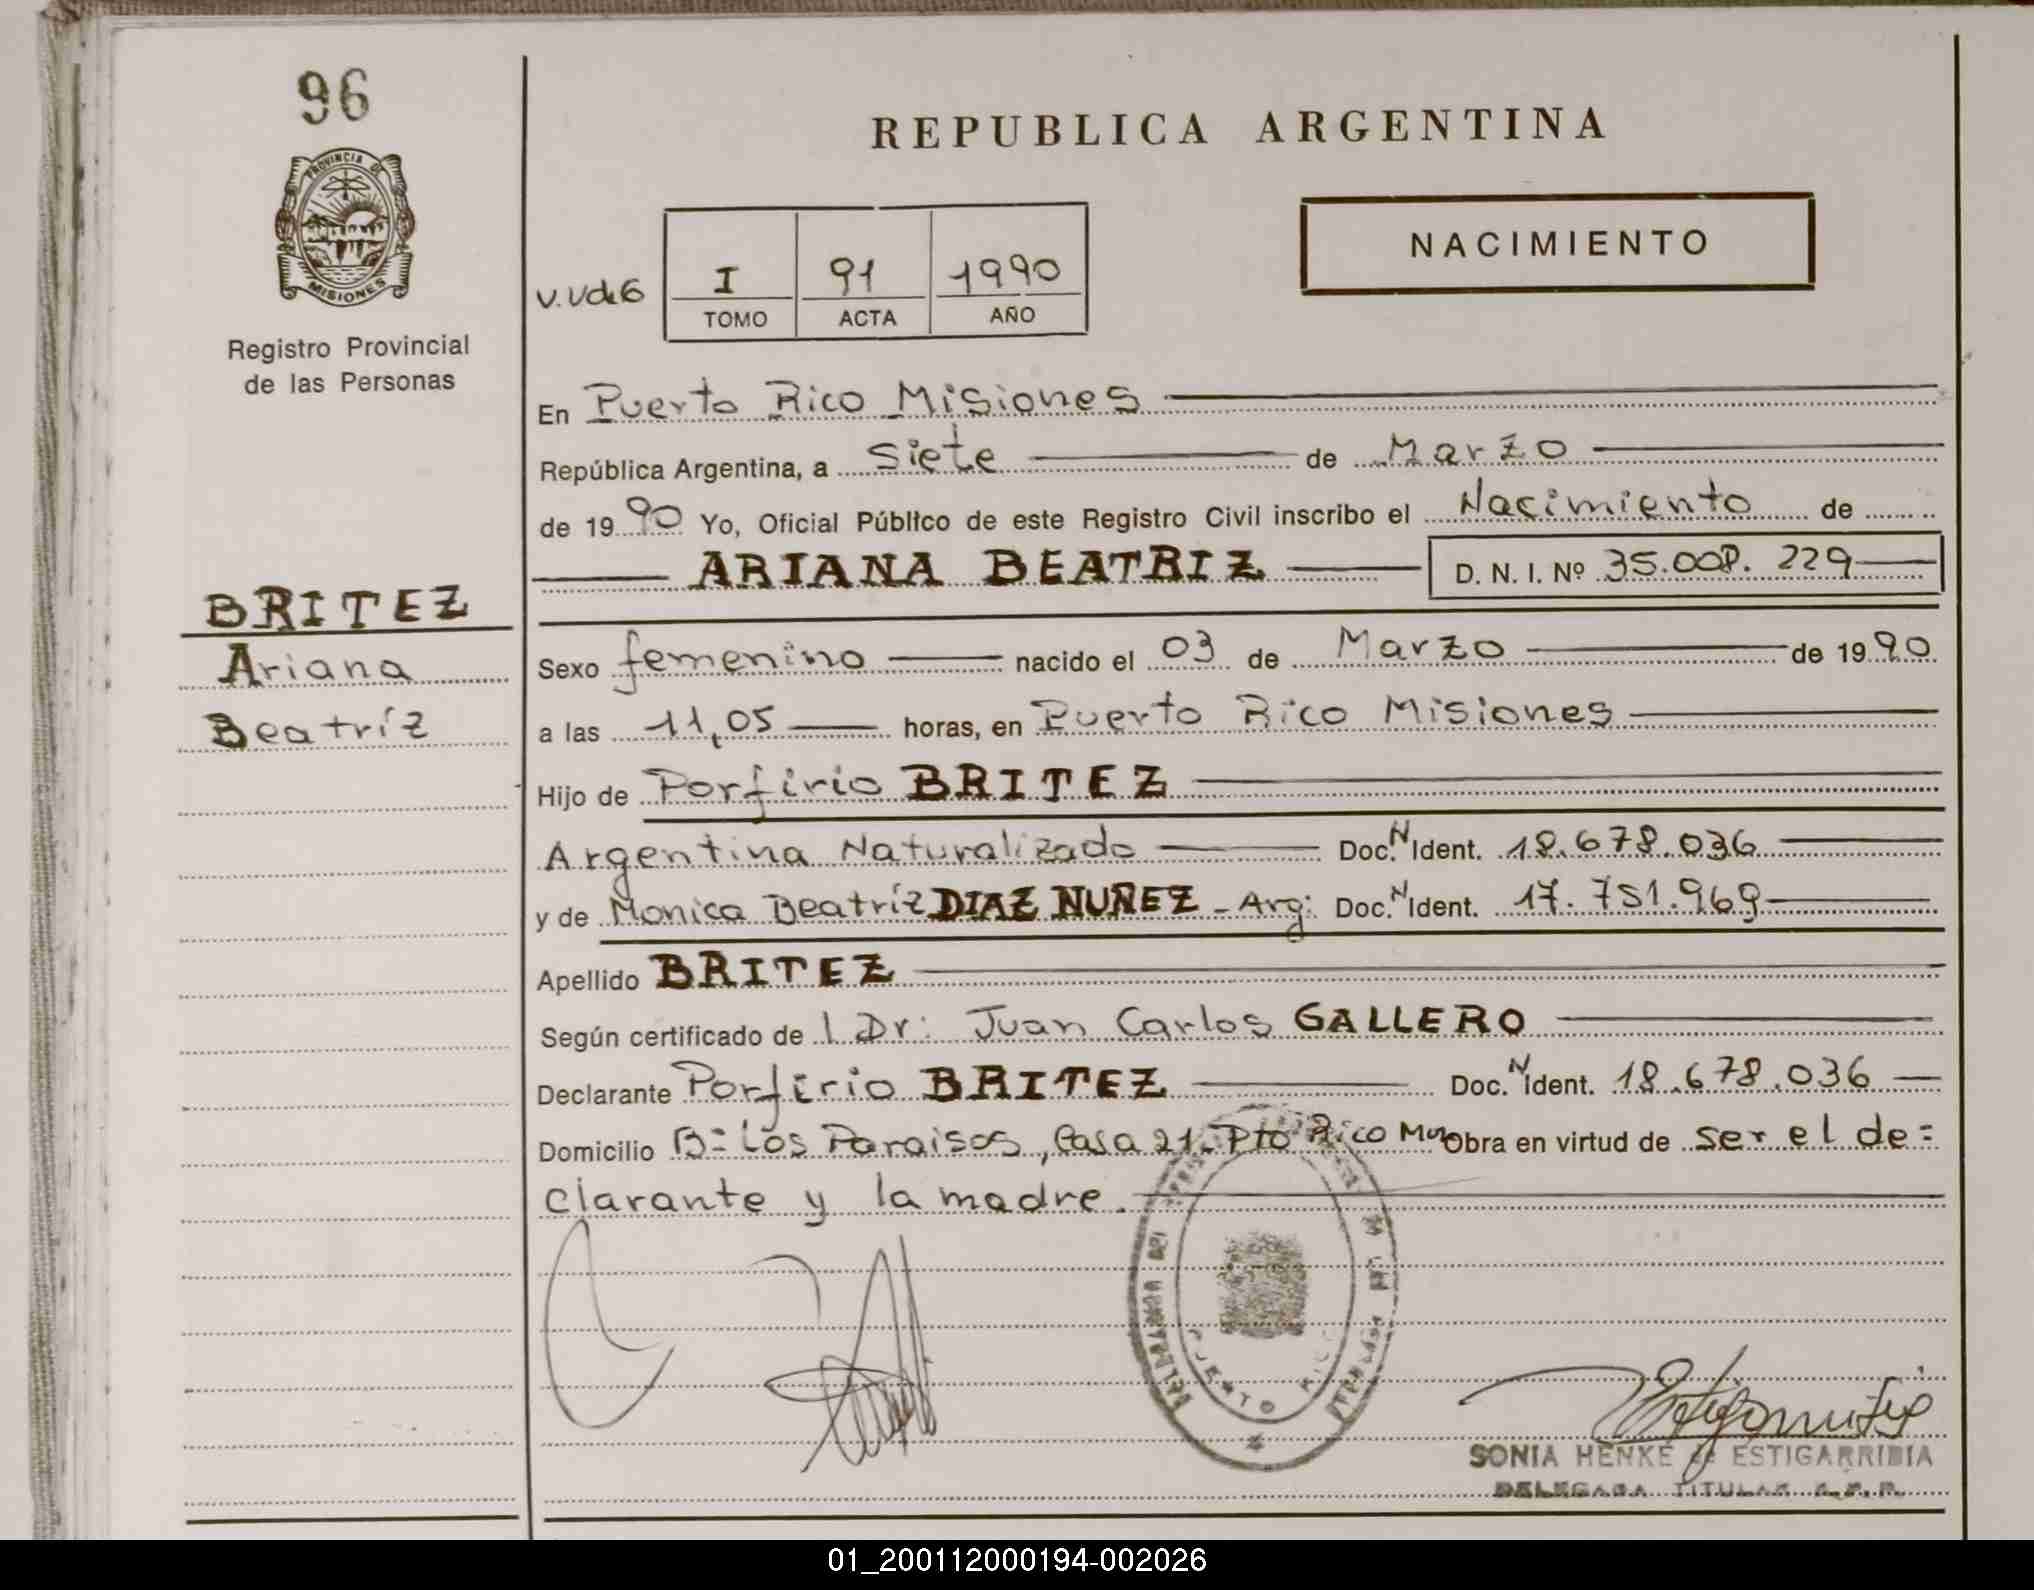 96
PROVINCIA DE
MISIONES
Registro Provincial
de las Personas
BRITEZ
Ariana
Beatríz
REPUBLICA ARGENTINA
NACIMIENTO
I 91 1990
TOMO ACTA AÑO
En Puerto Rico Misiones
República Argentina, a Siete de Marzo
de 1990 Yo, Oficial Público de este Registro Civil inscribo el Nacimiento de
ARIANA BEATRIZ D. N. I. Nº 35.008.229
Sexo femenino nacido el 03 de Marzo de 1990
a las 11,05 horas, en Puerto Rico Misiones
Hijo de Porfirio BRITEZ
Argentina Naturalizado Doc. N Ident. 18.678.036
y de Monica Beatríz DIAZ NUÑEZ - Arg: Doc. N Ident. 17.751.969
Apellido BRITEZ
Según certificado de l Dr: Juan Carlos GALLERO
Declarante Porfirio BRITEZ Doc. N Ident. 18.678.036
Domicilio B= Los Paraisos, Casa 21. Pto Rico Obra en virtud de ser el de=
clarante y la madre.
PUERTO RICO
SONIA HENKE de ESTIGARRIBIA
DELEGADA TITULAR R.P.P.
01_200112000194-002026